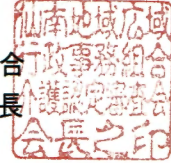 合長
仙南地域広域
行政事務組合
介護認定審査会
会長之印